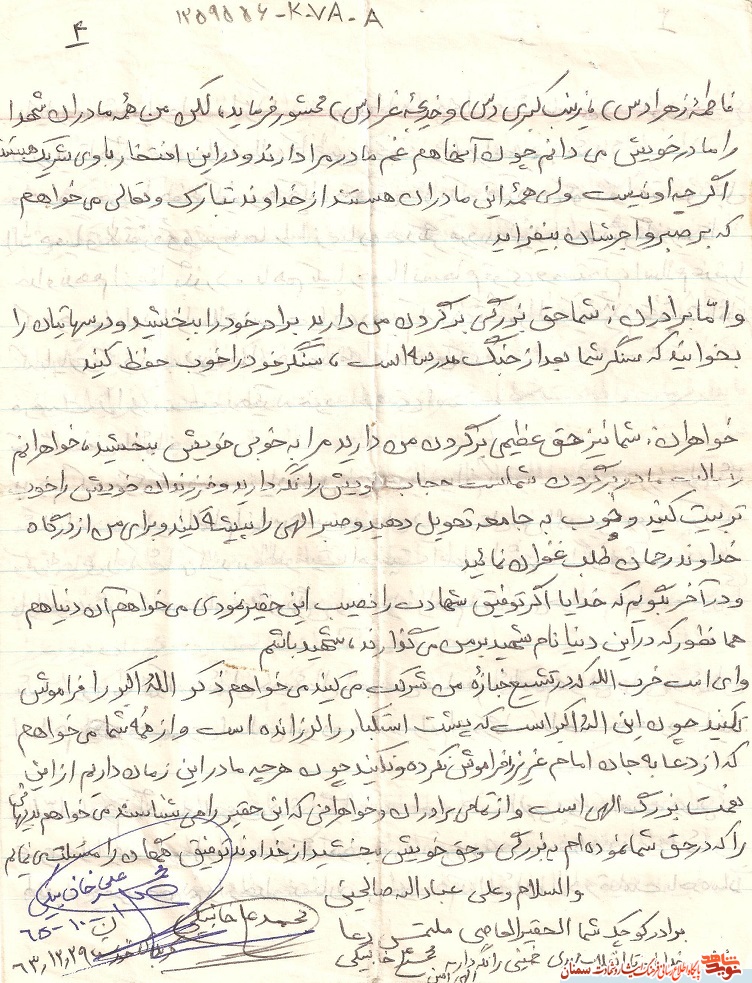 ۱۲۵۹۵۵۶-K-VA-A
۴
فاطمهٔ زهرا (س)، زینب کبری (س) و خدیجهٔ غرا (س) محشور فرماید، لکن من همه مادران شهدا
را مادر خویش می دانم چون آنها هم غم مادر مرا دارند و در این افتخار با وی شریک هستند
اگر چه او نیست ولی همهٔ این مادران هستند از خداوند تبارک و تعالی می خواهم
که بر صبر و اجرشان بیفزاید
و امّا برادران: شما حق بزرگی بر گردن من دارید برادر خود را ببخشید و درسهایتان را
بخوانید که سنگر شما بعد از جنگ مدرسه است، سنگر خود را خوب حفظ کنید
خواهران: شما نیز حق عظیمی بر گردن من دارید مرا به خوبی خویش ببخشید، خواهرانم
رسالت مادر بر گردن شماست حجاب خویش را نگه دارید و فرزندان خویش را خوب
تربیت کنید و خوب به جامعه تحویل دهید و صبر الهی را پیشه کنید و برای من از درگاه
خداوند رحمان طلب غفران نمائید
و در آخر بگویم که خدایا اگر توفیق شهادت را نصیب این حقیر نمودی می خواهم آن دنیا هم
همانطور که در این دنیا نام شهید بر من می گذارند، شهید باشم
و ای امت حزب الله که در تشییع جنازهٔ من شرکت می کنید می خواهم ذکر الله اکبر را فراموش
نکنید چون این الله اکبر است که پشت استکبار را لرزانده است و از همهٔ شما می خواهم
که از دعا به جان امام عزیز فراموش نکرده و نکنید چون هر چه ما در این زمان داریم از این
نعمت بزرگ الهی است و از تمامی برادران و خواهرانی که این حقیر را می شناسند می خواهم بدیهائی
را که در حق شما نموده ام به بزرگی و حق خویش ببخشید از خداوند توفیق همگان را مسئلت می نمایم
والسلام و علی عبادالله صالحین
برادر کوچک شما الحقیر العاصی ملتمس دعا
محمد علی خانبیکی
علی خانبیکی
محمد علی خانبیکی
۶۳,۱۲,۲۹
خدایا خدایا تا انقلاب مهدی خمینی را نگه دار
الهی آمین
نوید شاهد
پایگاه اطلاع رسانی فرهنگ ایثار و شهادت سمنان